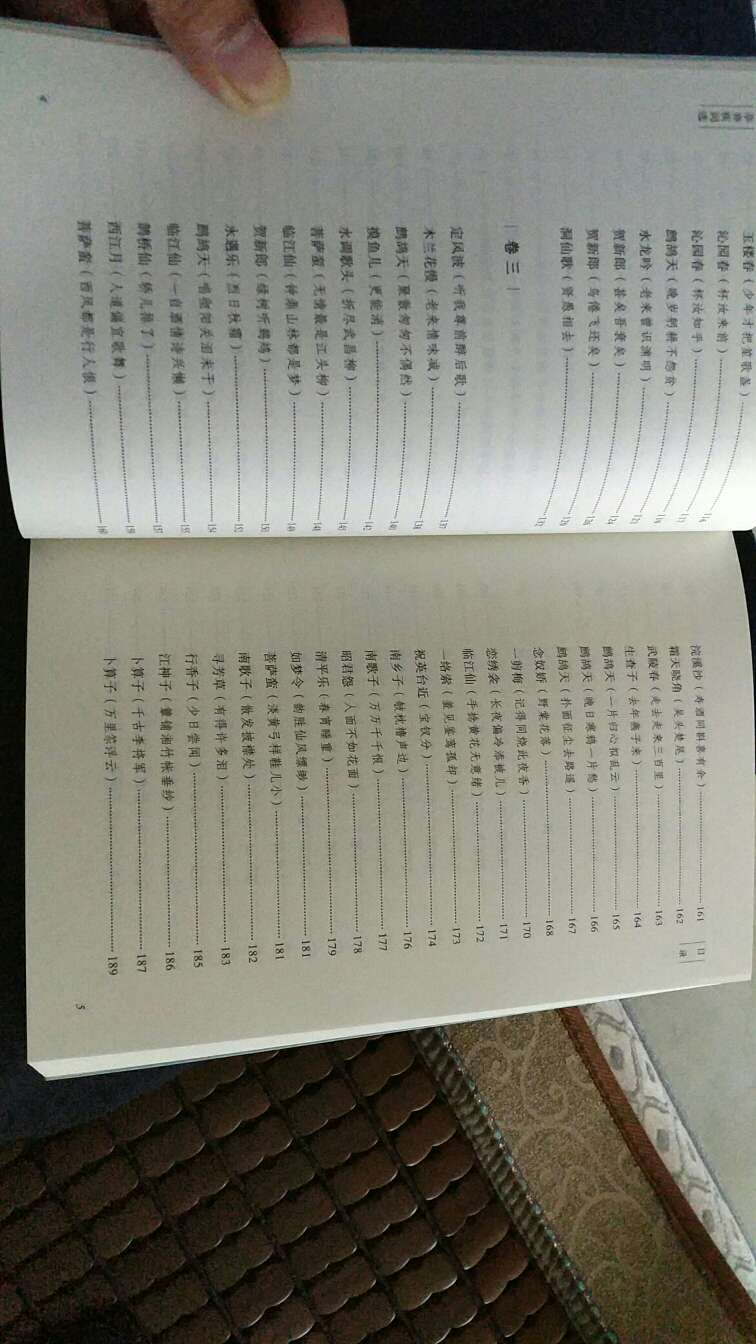 辛弃疾词选
玉楼春（少年才把笙歌盏）
沁园春（杯汝来前） 116
沁园春（杯汝知乎）
鹧鸪天（晚岁躬耕不怨贫）
水龙吟（老来曾识渊明） 123
贺新郎（甚矣吾衰矣） 124
贺新郎（鸟倦飞还矣） 126
洞仙歌（贤愚相去）
卷三
定风波（听我尊前醉后歌） 137
木兰花慢（老来情味减） 138
鹧鸪天（聚散匆匆不偶然） 140
摸鱼儿（更能消） 142
水调歌头（折尽武昌柳） 145
菩萨蛮（无情最是江头柳） 148
临江仙（钟鼎山林都是梦） 149
贺新郎（绿树听鹈鴂） 150
永遇乐（烈日秋霜） 152
鹧鸪天（唱彻阳关泪未干） 154
临江仙（一自酒情诗兴懒） 155
鹊桥仙（轿儿排了） 157
西江月（人道偏宜歌舞） 159
菩萨蛮（西风都是行人恨） 160
4
目录
浣溪沙（寿酒同斟喜有余） 161
霜天晓角（吴头楚尾） 162
武陵春（走去走来三百里） 163
生查子（去年燕子来） 164
鹧鸪天（一片归心拟乱云） 165
鹧鸪天（晚日寒鸦一片愁） 166
鹧鸪天（扑面征尘去路遥） 167
念奴娇（野棠花落） 168
一剪梅（记得同烧此夜香） 170
恋绣衾（长夜偏冷添被儿） 171
临江仙（手捻黄花无意绪） 172
一络索（羞见鉴鸾孤却） 173
祝英台近（宝钗分） 174
南乡子（敧枕橹声边） 176
南歌子（万万千千恨） 177
昭君怨（人面不如花面） 178
清平乐（春宵睡重） 179
如梦令（韵胜仙风缥缈） 181
菩萨蛮（淡黄弓样鞋儿小） 181
南歌子（散发披襟处） 182
寻芳草（有得许多泪） 183
行香子（少日尝闻） 185
江神子（簟铺湘竹帐垂纱） 186
卜算子（千古李将军） 187
卜算子（万里籋浮云） 189
5